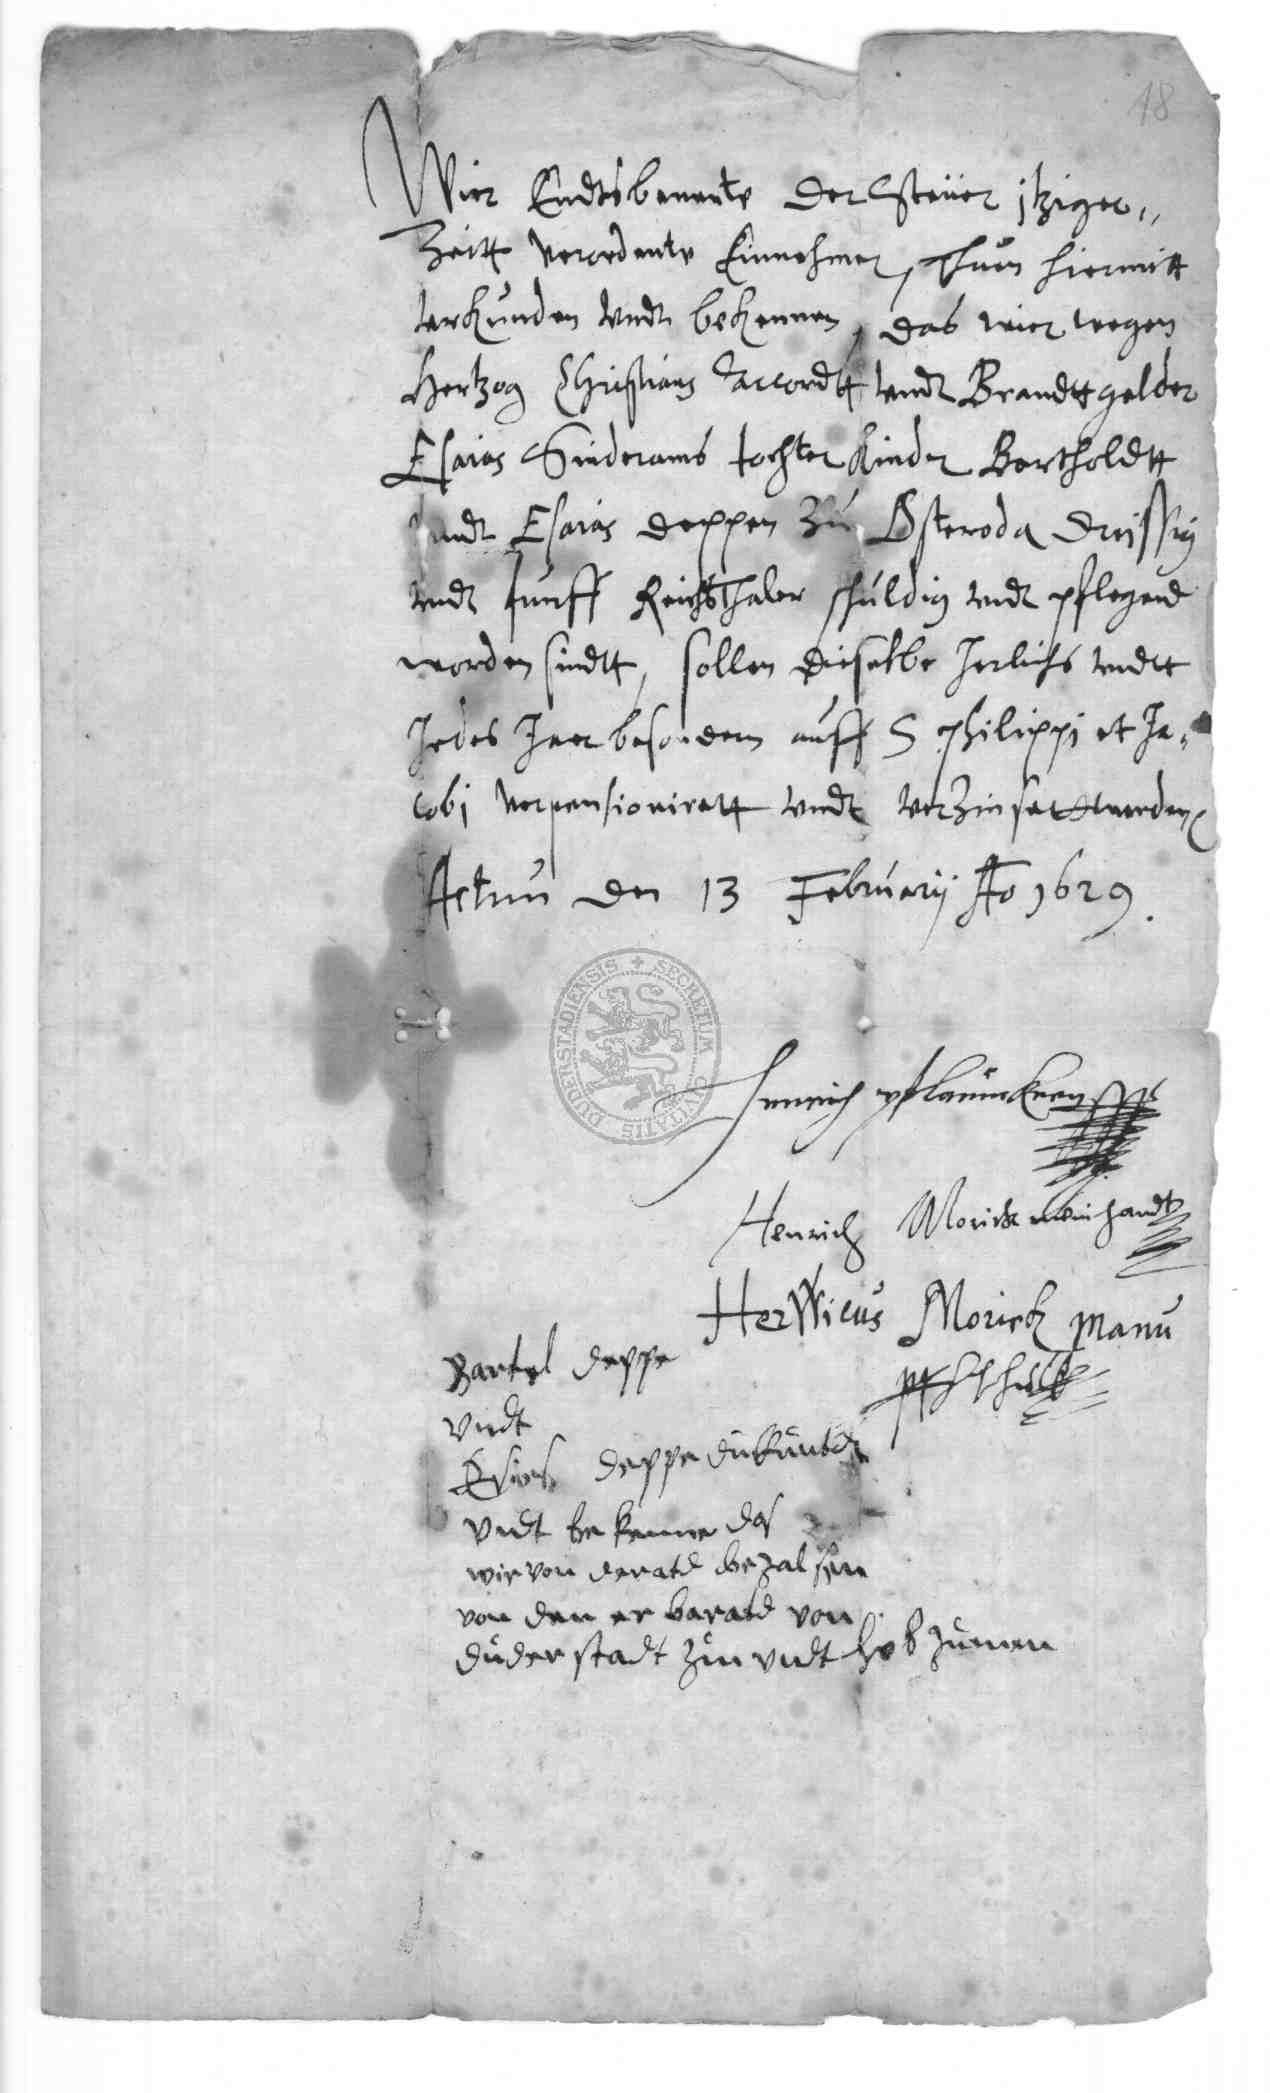 18
Wier Endtsbenente der Steuer jtziger
Zeitt verordente Einnehmer, Thun hiermitt
verkunden vndt bekennen, das wier wegen
Hertzog Christians Accordtt vndt Brandttgelder
Esaias Sinderams tochter Kinder Bertholdtt
vndt Esaias deppen Zu Osteroda dreissig
vndt funff Reichsthaler schuldig vndt pflegend
worden sindtt, sollen dieselbe Jerlichs vndtt
Jedes Jaer besondern auff S philippj et Ja„
cobj verpensioniratt vndt verZinsett werden
Actum den 13 February Ao 1629.
SECRETUM CIVITATIS DUDERSTADIENSIS
Henrich
Henrich Morick mein handt
Herwicus Morick manu
Bartel deppe
vndt
deppe
vndt bekenne das
wir von
von den
duderstadt vndt